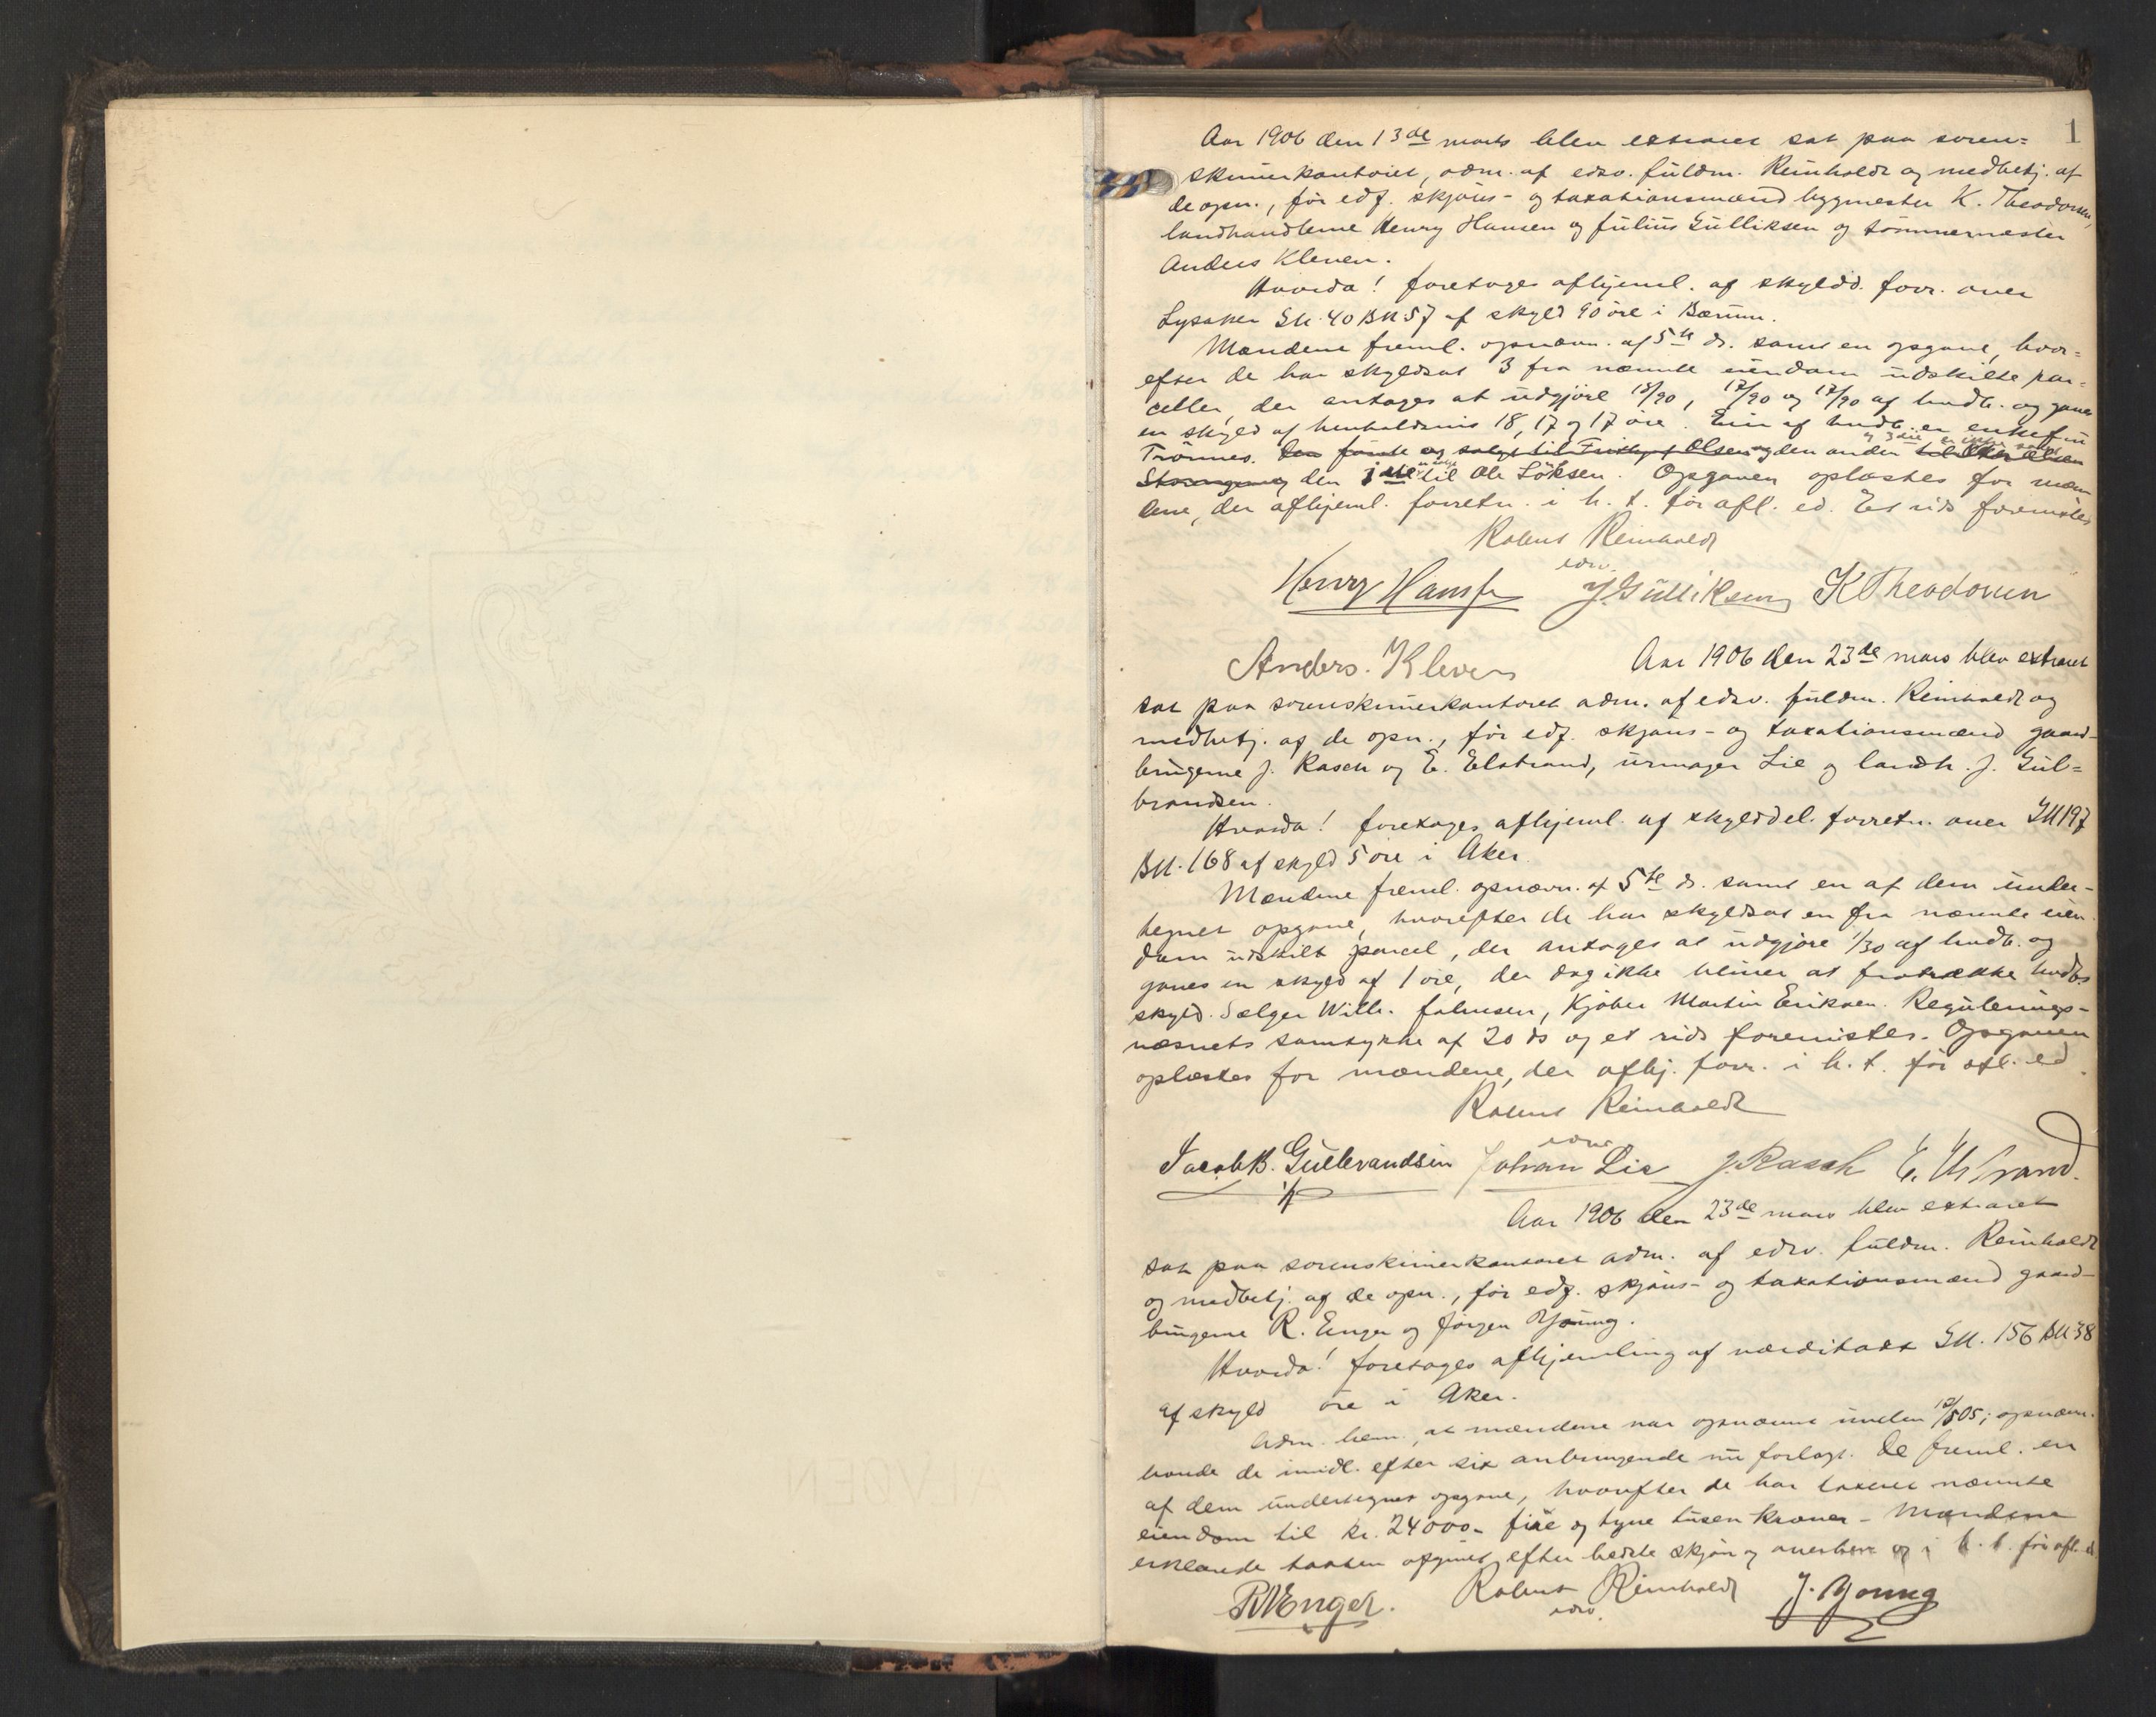 1
Aar 1906 den 13de marts blev extraret sat paa soren=
skriverkontoret, adm. af edsv. fuldm. Reinholdt og medbetj. af
de opn., før edf. skjøns- og taxationsmænd bygmester K. Theodorsen,
landhandlerne Henry Hansen og Julius Gulliksen og tømmermester
Anders Kleven.
Hvorda! foretages afhjeml. af skyldd. forr. over
Lysaker GN. 40 BN 57 af skyld 90 øre i Bærum.
Mændene freml. opnævn. af 5te ds. samt en opgave, hvor=
efter de har skyldsat 3 fra nævnte eiendom udskilte par=
celler, der antages at udgjøre 18/90, 17/90 og 17/90 af hovedb. og gaves
en skyld af henholdsvis 18, 17 og 17 øre. Eier af hovedb. er enkefru
Trönnes. Den første og solgt til Olsen og den anden og 3die er ikke solgt
den 1ste er solgt til Ole Löksen. Opgaven oplæstes for mæn
dene, der afhjeml. forretn. i h. t. før afl. ed. Et rids forevistes
Robert Reinholdt
edsv.
Henry Hansen J. Gulliksen K Theodorsen
Anders. Kleven Aar 1906 den 23de mars blev extraret
sat paa sorenskriverkontoret adm. af edsv. fuldm. Reinholdt og
medbetj. af de opn., før edf. skjøns- og taxationsmænd gaard-
brugerne J. Rasch og E. Elstrand, urmager Lie og landh. J. Gul=
brandsen.
Hvorda! foretages afhjeml. af skylddel. forretn. over GN 197
BN. 168 af skyld 5 øre i Aker.
Mændene freml. opnævn. af 5te ds. samt en af dem under-
tegnet opgave, hvorefter de har skyldsat en fra nævnte eien
dom udskilt parcel, der antages at udgjøre 1/30 af hovedb. og
gaves en skyld af 1 øre, der dog ikke bliver at fratrække hovedbs
skyld. Sælger Wilh. Johnsen, Kjøber Martin Eriksen. Regulerings-
væsnets samtykke af 20 ds og et rids forevistes. Opgaven
oplæstes for mændene, der afhj. forr. i h. t. før afl. ed.
Robert Reinholdt
edsv.
Jacob B. Gulbrandsen Johan Lie J. Rasch E. Elstrand.
Aar 1906 den 23de mars blev extraret
sat paa sorenskriverkontoret adm. af edsv. fuldm. Reinholdt
og medbetj. af de opn., før edf. skjøns- og taxationsmænd gaard-
brugerne R. Enger og Jørgen Young.
Hvorda! foretages afhjemling af værditaxt GN. 156 BN 38
af skyld øre i Aker.
Adm. bem., at mændene var opnævnt under 10/5 05; opnævn.
havde de imidl. efter sit anbringende nu forlagt. De freml. en
af dem undertegnet opgave, hvorefter de har taxeret nævnte
eiendom til kr. 24000 - fire og tyve tusen kroner - Mændene
erklærede taxten afgivet efter bedste skjøn og overbev. og i h. t. før afl. ed.
R Enger. Robert Reinholdt J. Young
edsv.